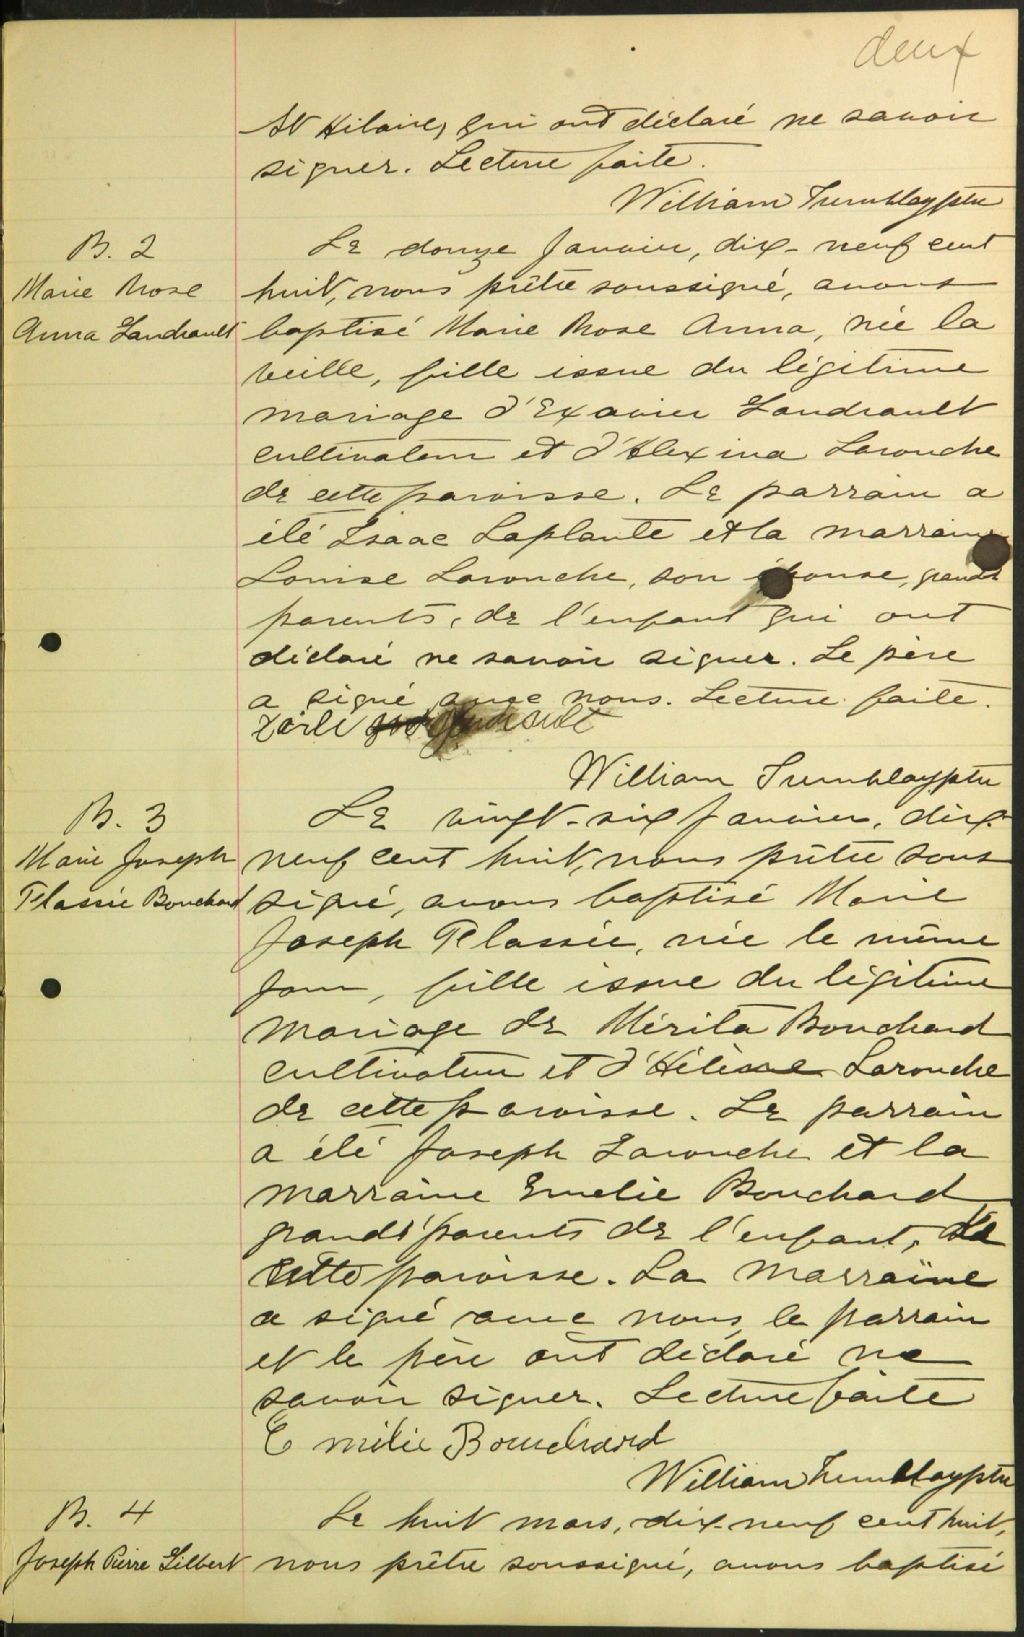 deux
St Hilaire, qui ont déclaré ne savoir
signer. Lecture faite.
William Tremblay ptre
B. 2
Marie Rose
Anna Gaudreault
Le douze Janvier, dix-neuf cent
huit, nous prêtre soussigné, avons
baptisé Marie Rose Anna, née la
veille, fille issue du légitime
mariage d'Exavier Gaudreault
cultivateur et d'Alexina Larouche
de cette paroisse. Le parrain a
été Isaac Laplante et la marraine
Louise Larouche, son épouse, grands
parents, de l'enfant qui ont
déclaré ne savoir signer. Le père
a signé avec nous. Lecture faite.
William Tremblay ptre
B. 3
Marie Joseph
Bouchard
Le vingt-six Janvier, dix-
neuf cent huit, nous prêtre sous
signé, avons baptisé Marie
Joseph née le même
jour, fille issue du légitime
mariage de Mérita Bouchard
cultivateur et d'Hélène Larouche
de cette paroisse. Le parrain
a été Joseph Larouche et la
marraine Emelie Bouchard
grands'parents de l'enfant, de
cette paroisse. La marraine
a signé avec nous, le parrain
et le père ont déclaré ne
savoir signer. Lecture faite
Emilie Bouchard
William Tremblay ptre
B. 4
Joseph Pierre Gilbert
Le huit mars, dix-neuf cent huit,
nous prêtre soussigné, avons baptisé